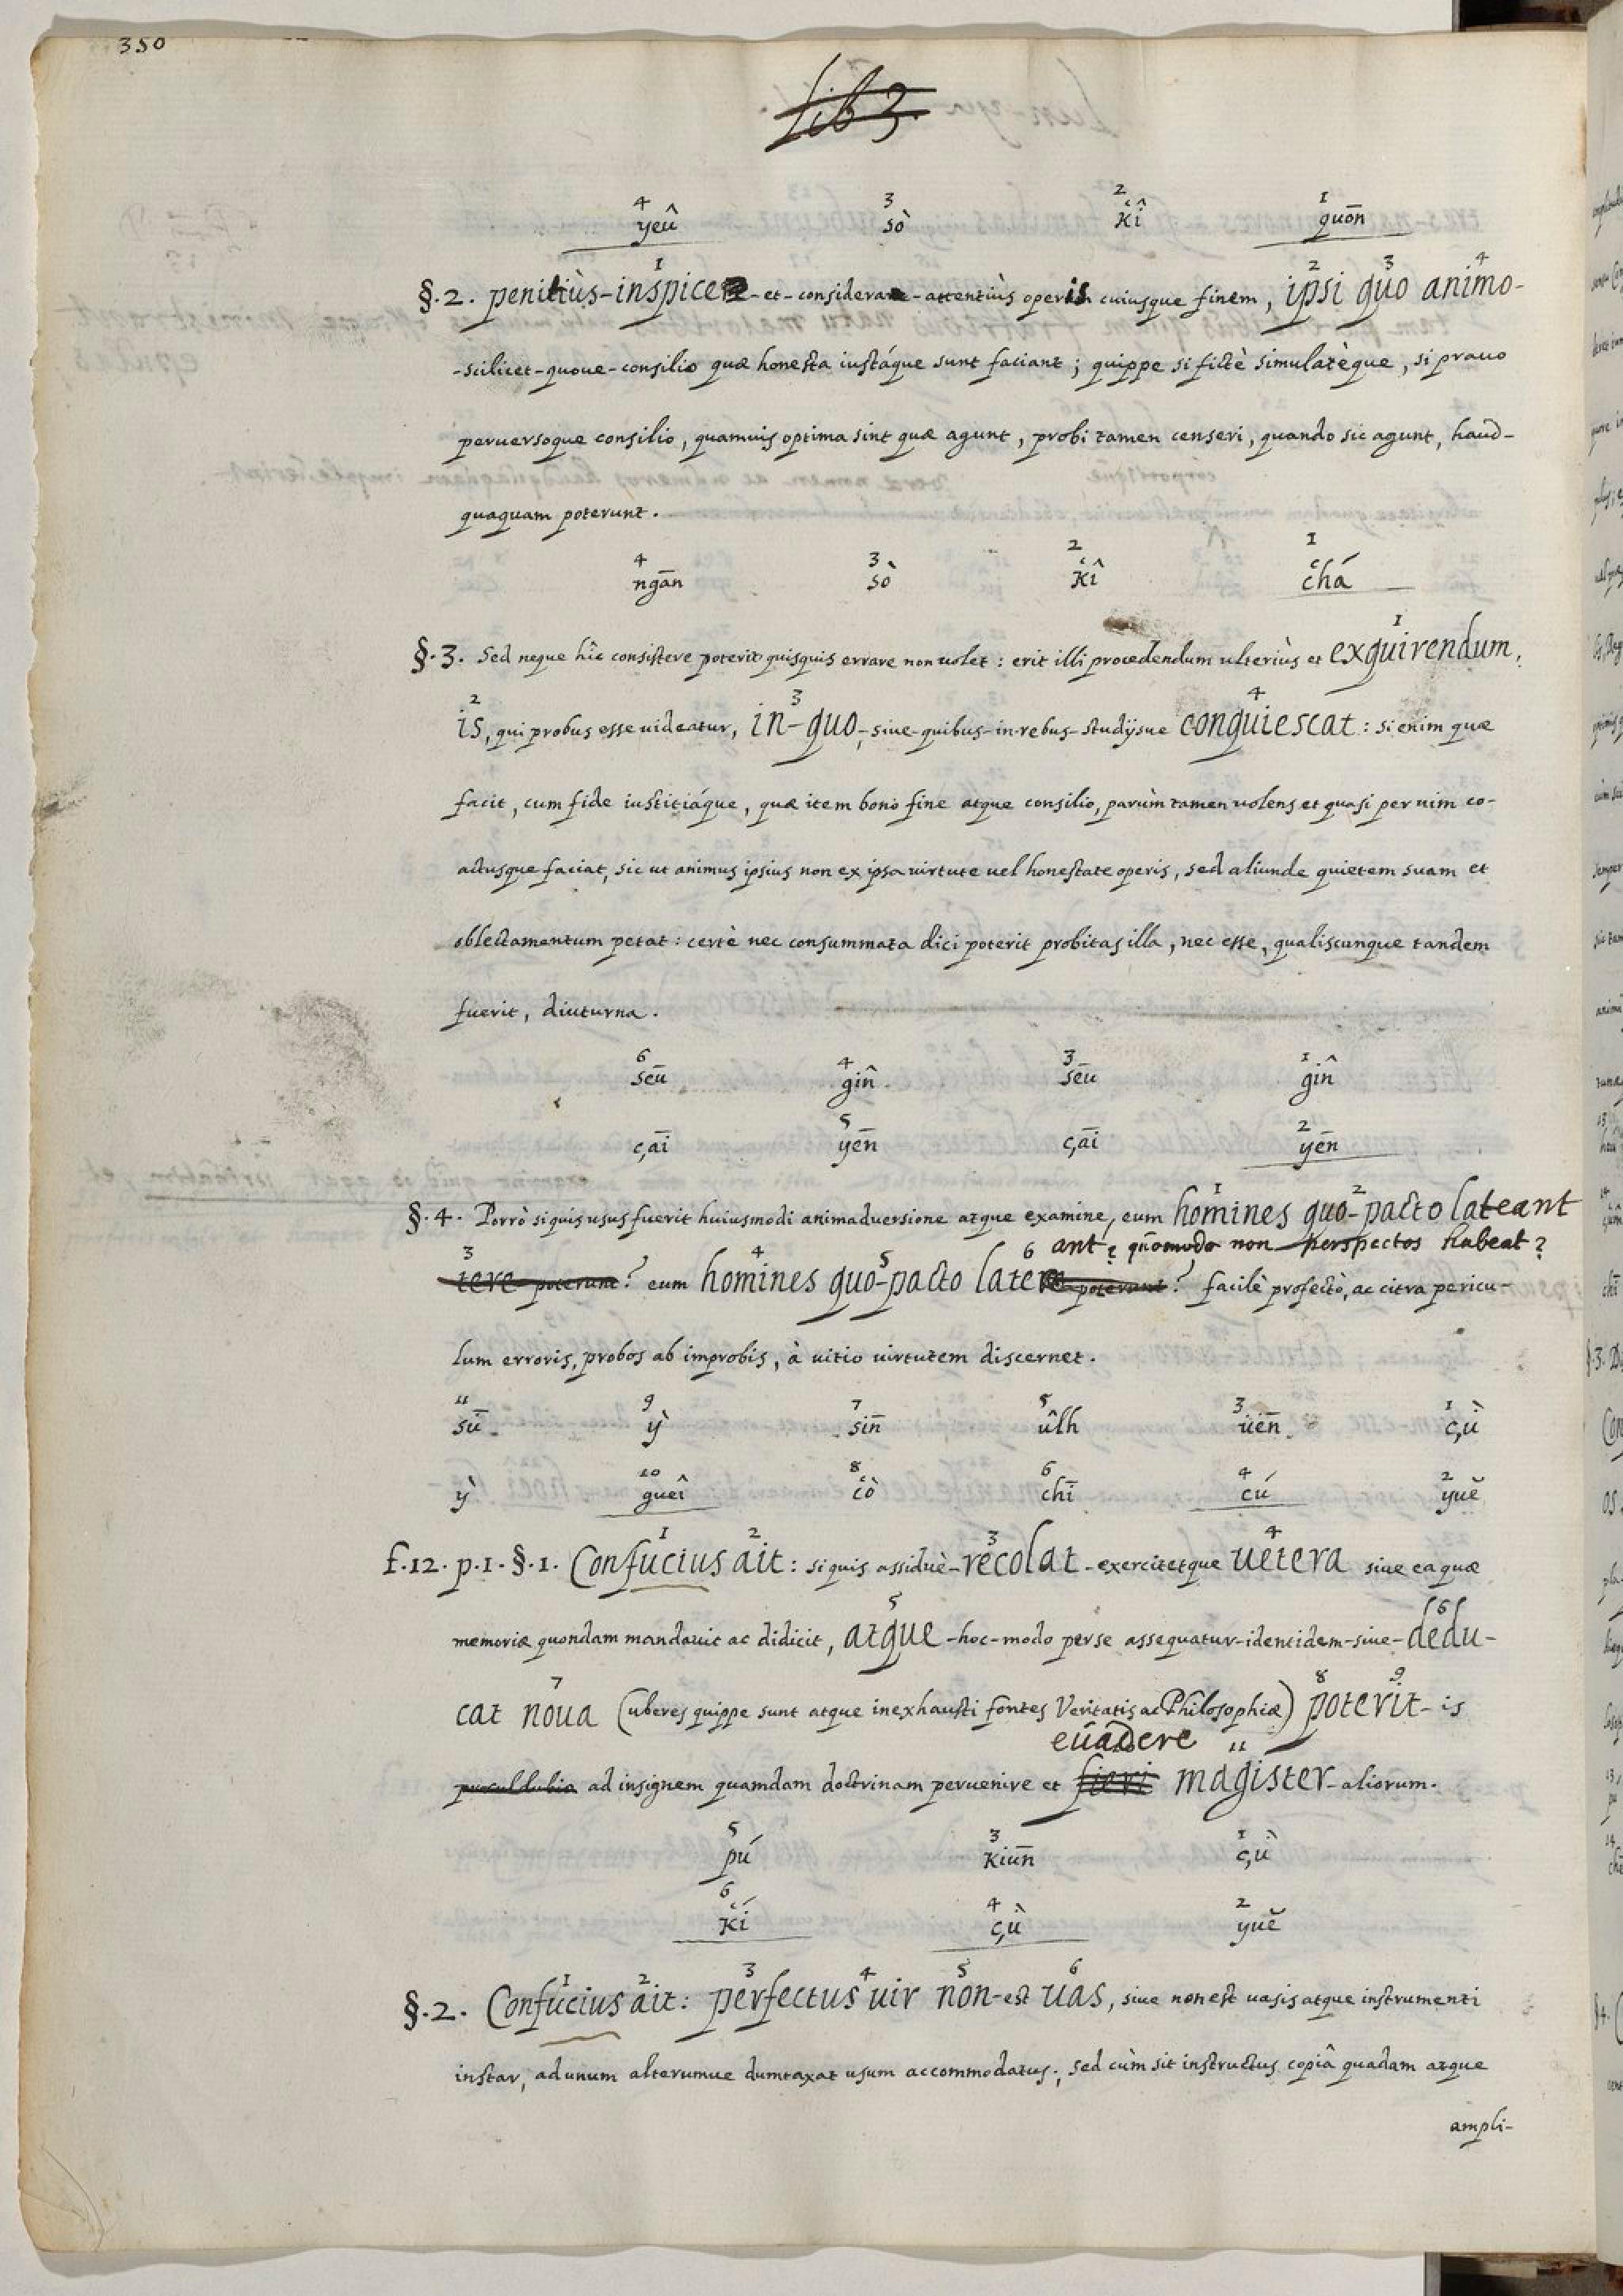 350
Lib 3.
4 3 2 1
yeû sò kî quōn
§.2. penitiùs-inspicere-et-considerare-attentiùs operis cuiusque finem, ipsi quo animo-
-scilicet-quoue-consilio quæ honesta iustáque sunt faciant; quippe si fictè simulatèque, si prauo
peruersoque consilio, quamuis optima sint quæ agunt, probi tamen censeri, quando sic agunt, haud-
quaquam poterunt.
4 3 2 1
ngān sò kî chá
§.3. Sed neque hîc consistere poterit quisquis errare non uolet: erit illi procedendum ulteriùs et exquirendum,
is, qui probus esse uideatur, in-quo-siue-quibus-in-rebus-studijsue conquiescat: si enim quæ
facit, cum fide iustitiáque, quæ item bono fine atque consilio, parùm tamen uolens et quasi per uim co-
actusque faciat, sic ut animus ipsius non ex ipsa uirtute uel honestate operis, sed aliunde quietem suam et
oblectamentum petat: certè nec consummata dici poterit probitas illa, nec esse, qualiscunque tandem
fuerit, diuturna.
6 4 3 1
seū gîn seū gîn
5 2
çāi yēn çāi yēn
§.4. Porrò siquis usus fuerit huiusmodi animaduersione atque examine, eum homines quo-pacto lateant
ant? quomodo non perspectos habeat?
tere poterunt? eum homines quo-pacto latere poterunt? facilè profectò, ac citra pericu-
lum erroris, probos ab improbis, à uitio uirtutem discernet.
11 9 7 5 3 1
sū ỳ sīn ûlh uēn çù
10 8 6 4 2
ỳ gueî cò chī cú yuĕ
f.12. p.1. §.1. Confucius ait: siquis assiduè-recolat-exercitetque uetera siue ea quæ
memoriæ quondam mandauit ac didicit, atque-hoc-modo per se assequatur-identidem-siue-dedu-
cat noua (uberes quippe sunt atque inexhausti fontes Veritatis ac Philosophiæ) poterit-is
euadere
proculdubio ad insignem quamdam doctrinam peruenire et fieri magister-aliorum.
5 3 1
pú kiūn çù
6 4 2
kí çù yuĕ
§.2. Confucius ait: perfectus uir non-est uas, siue non est uasis atque instrumenti
instar, ad unum alterumue dumtaxat usum accommodatus; sed cùm sit instructus copiâ quadam atque
ampli-